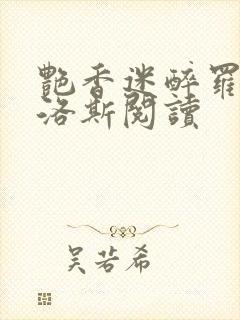 艷香迷醉羅
洛斯閱讀
吳若希